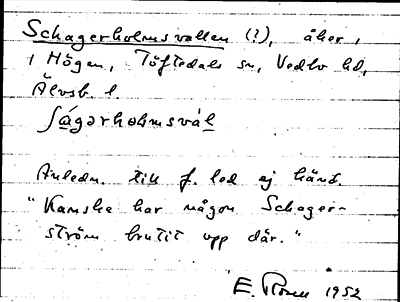 Schagerholmsvallen (?), åker,
i Högen, Töftedals sn, Vedbo hd,
Älvsb. l.
ʃágərholmsvàl
Anledn. till f. led ej känd.
"Kanske har någon Schager-
ström brutit upp där."
E. 1952